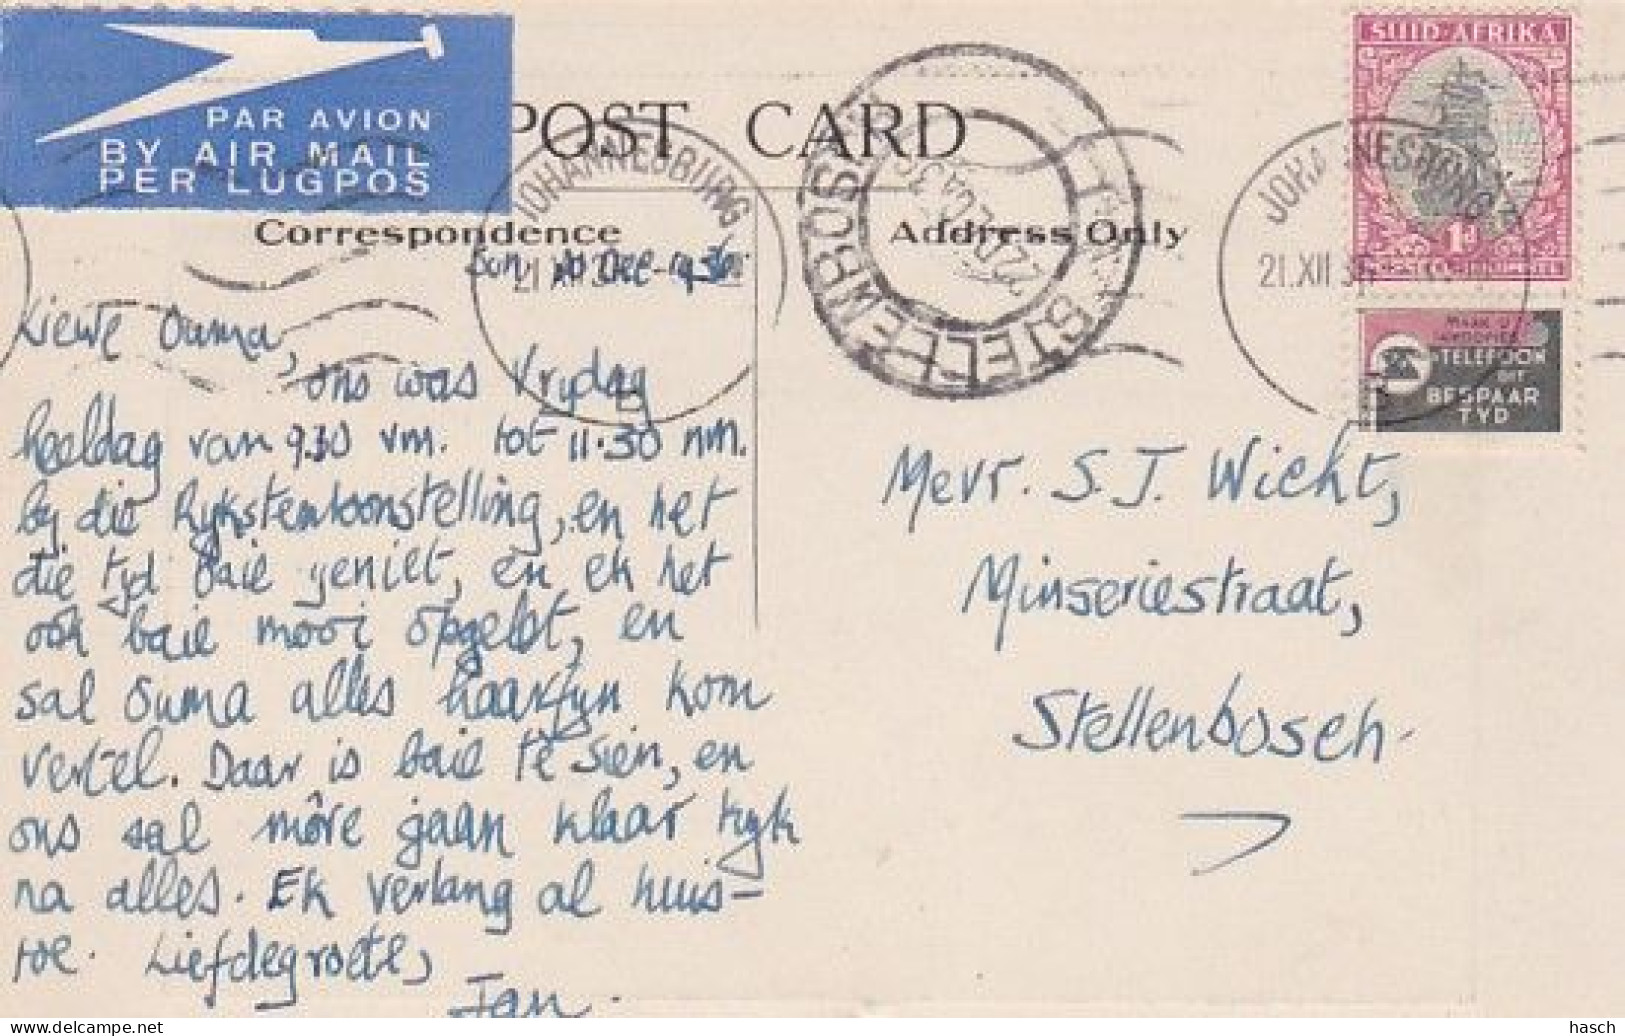 PAR AVION
BY AIR MAIL
PER LUGPOS
POST CARD
Correspondence
Address Only
SUID-AFRIKA
1d
JOHANNESBURG
21.XII 36
STELLENBOSCH
22 DEC 36
JOHANNESBURG
21.XII 36
TELEFOON
BESPAAR
TYD
Sun, 20 Dec 1936
Liewe Ouma,
ons was Vrydag
heeldag van 9.30 vm. tot 11.30 nm.
by die Rykstentoonstelling, en het
die tyd baie geniet, en ek het
ook baie mooi opgelet, en
sal Ouma alles haarfyn kom
vertel. Daar is baie te sien, en
ons sal môre gaan klaar kyk
na alles. Ek verlang al huis-
toe. Liefdegroete,
Jan.
Mevr. S.J. Wicht,
Minseriestraat,
Stellenbosch.
hasch